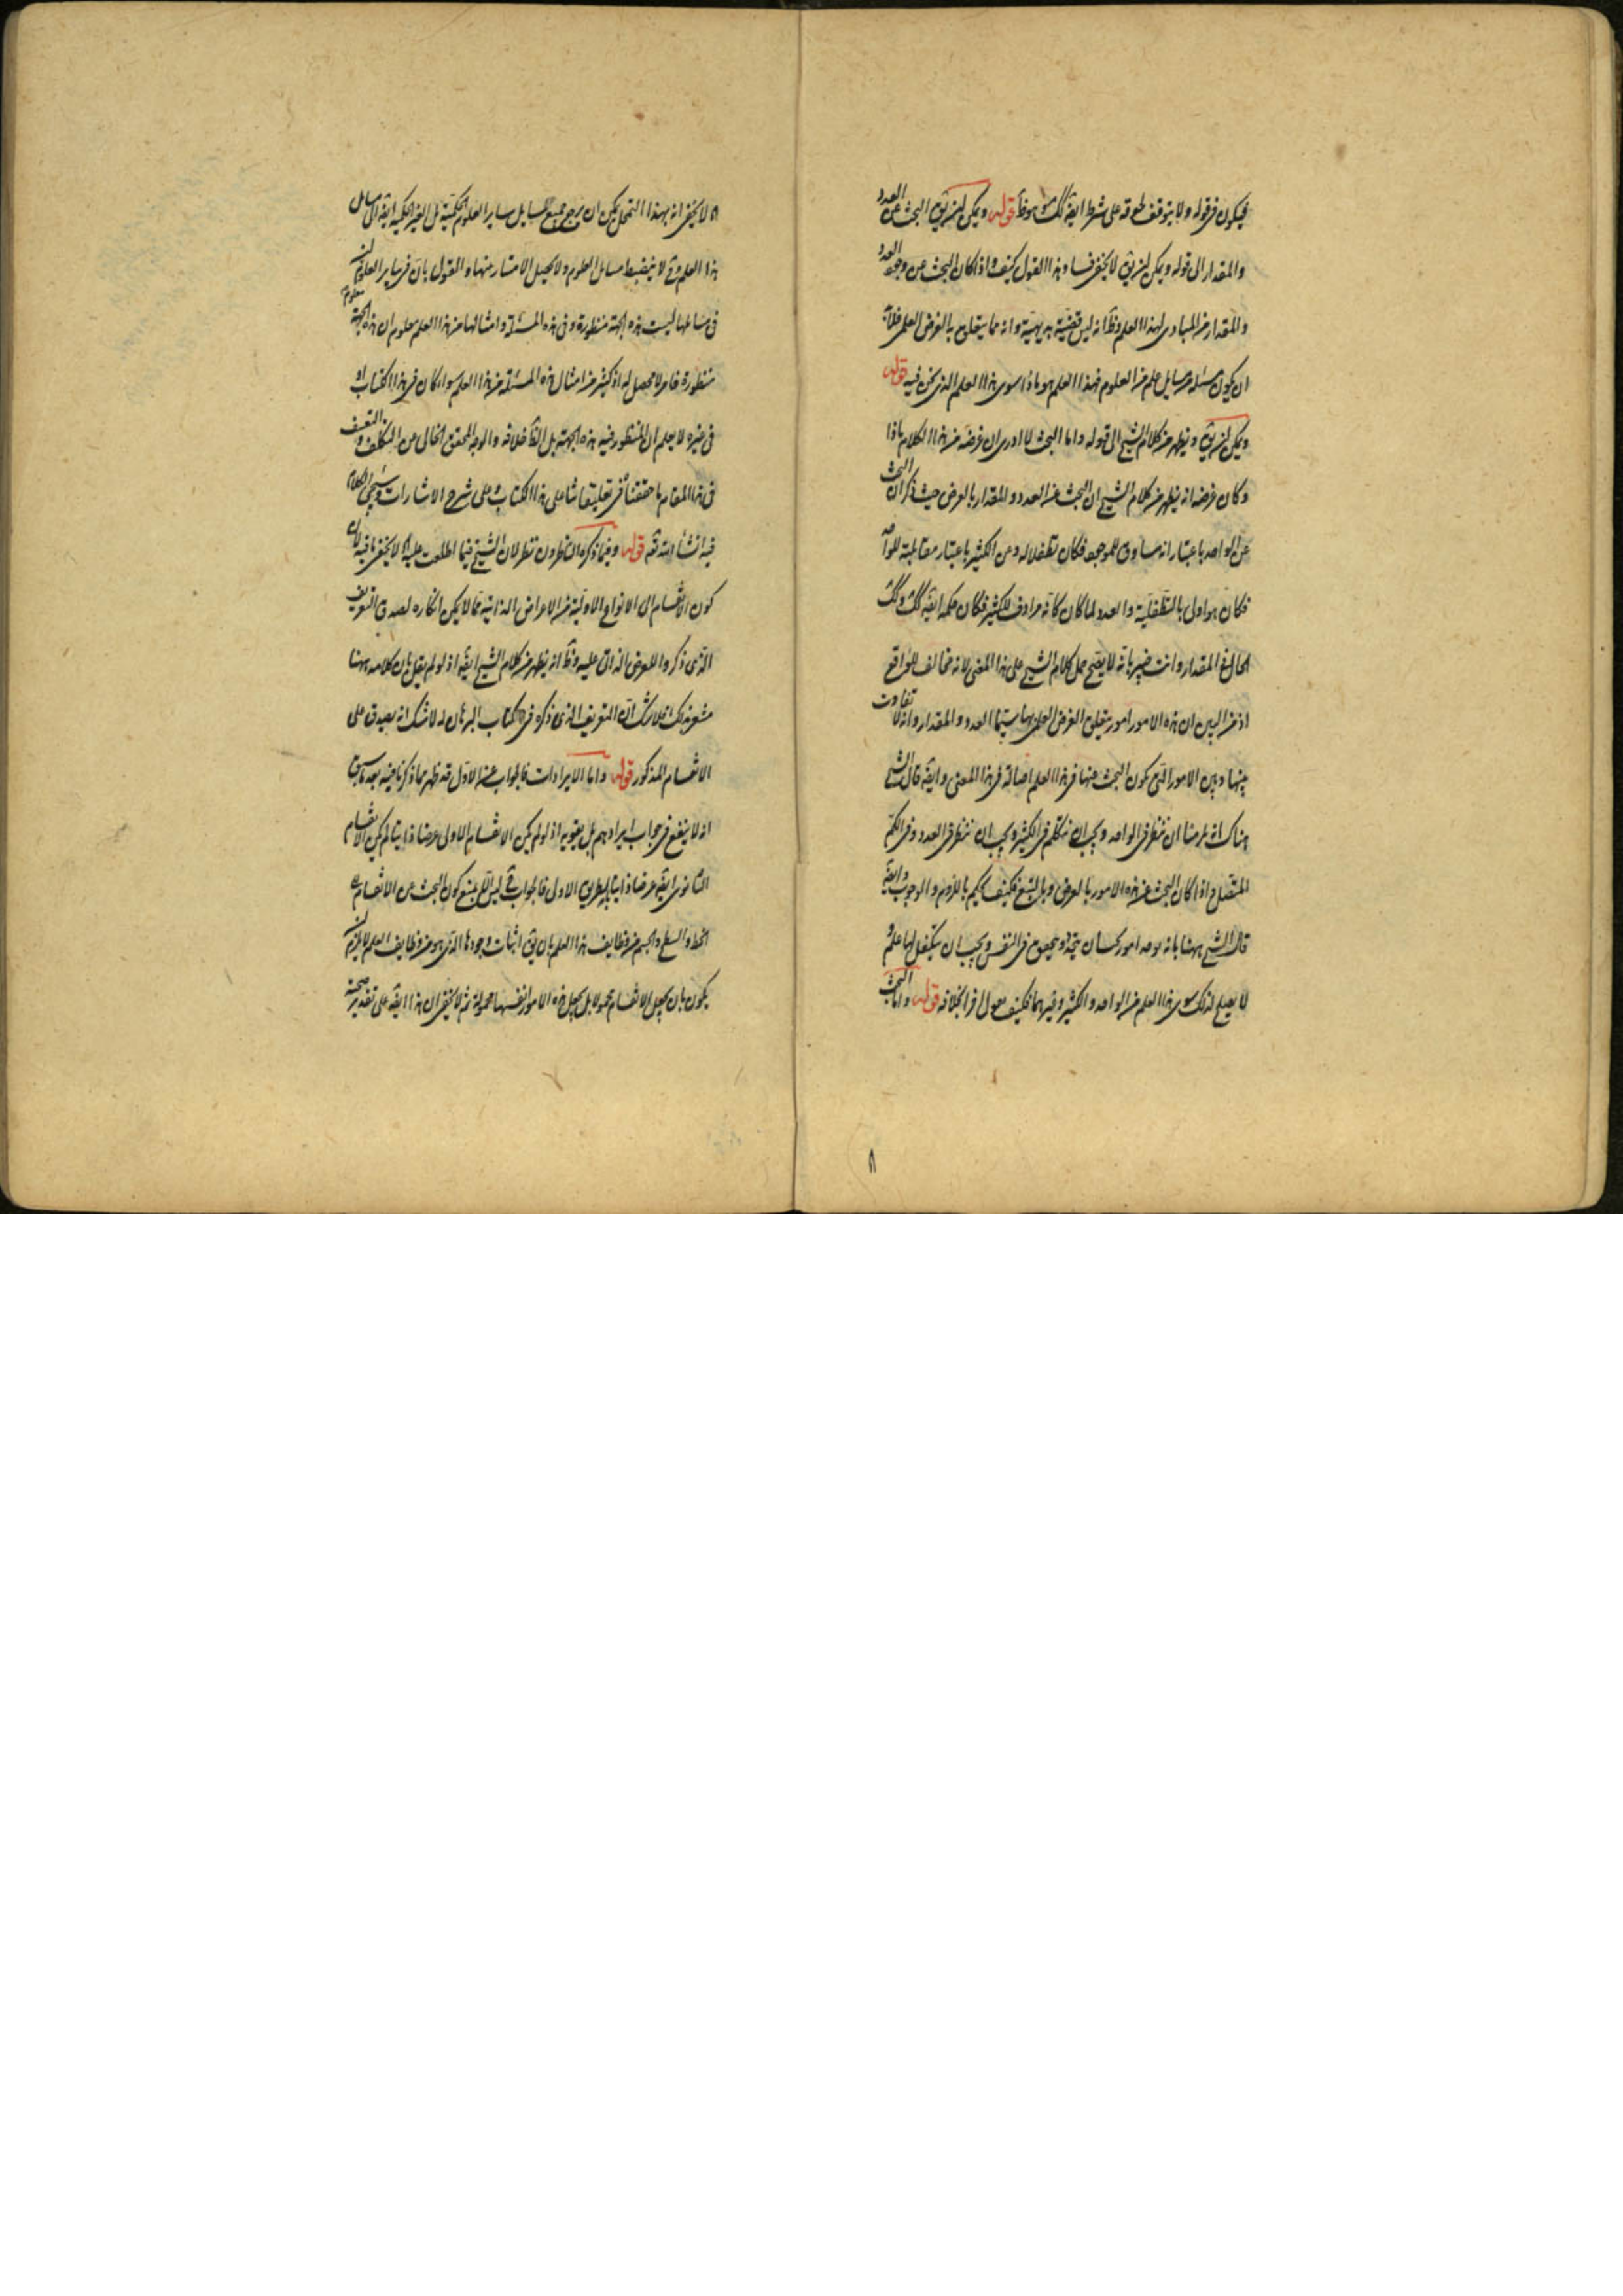 فيكون فى قوله ولا يتوقف لحوقه على شرط ايضا قوله ويمكن ان يق البحث عن العدد
والمقدار الى قوله ويمكن ان يق لا يخفى فساد هذا القول كيف واذا كان البحث عن وجود العدد
والمقدار من المبادى لهذا العلم وظ انه ليس قضية بديهية وانه مما يتعلق به الغرض العلمى فلا بد
ان يكون مسئلة من مسايل علم من العلوم فهذا العلم هو ماذا سوى هذا العلم الذى نحن فيه قوله
ويمكن ان يق ويظهر من كلام الشيخ الى قوله واما البحث لا ادرى ان غرضه من هذا الكلام ماذا
وكان غرضه انه يظهر من كلام الشيخ ان البحث عن العدد والمقدار بالعرض حيث ذكر ان البحث
عن الواحد باعتبار انه مساوق للموجود فكان تطفلا له وعن الكثير باعتبار مقابلته للواحد
فكان هو اولى بالتطفلية والعدد لما كان كانه مرادف للكثير فكان حكمه ايضا كك وكك
الحال فى المقدار وانت خبير بانه لا يصح حمل كلام الشيخ على هذا المعنى لانه مخالف للواقع
اذ من البين ان هذه الامور امور يتعلق الغرض العلمى بها سيما العدد والمقدار وانه لا تفاوت
بينها وبين الامور التى يكون البحث عنها فى هذا العلم اصالة فى هذا المعنى وايضا قال الشيخ
هناك انه لزمنا ان ننظر فى الواحد ويجب ان نتكلم فى الكثير ويجب ان ننظر فى العدد وفى الكم
المتصل واذا كان البحث عن هذه الامور بالعرض وبالتبع فكيف يحكم باللزوم والوجوب وايضا
قال الشيخ ههنا بانه يوجد امور يجب ان يتحدد ويحقق فى النفس ويجب ان يتكفل لها علم و
لا يصلح لذلك سوى هذا العلم من الواحد والكثير وغيرهما فكيف بخلافه قوله واما البحث
٨
لا يخفى انه بهذا التمحل يمكن ان يرجع جميع مسايل ساير العلوم الحكمية بل الغير الحكمية ايضا الى مسايل
هذا العلم وح لا ينضبط مسايل العلوم ولا يحصل الامتياز منها والقول بان فى ساير العلوم
فى مسائلها ليست هذه الجهة منظورة وفى هذه المسئلة وامثالها من هذا العلم معلوم ان هذه الجهة
منظورة فامر لا محصل له اذ كثير من امثال هذه المسئلة من هذا العلم سواء كان فى هذا الكتاب او
فى غيره لا يعلم ان المنظور فيه هذه الجهة بل الظ خلافه والوجه المحقق الخالى عن التكلف والتعسف
فى هذا المقام ما حققناه فى تعليقاتنا على هذا الكتاب وعلى شرح الاشارات وسيجئ الكلام
فيه انشاء الله تعه قوله وفيما ذكره الناظرون نظر لان الشيخ فيما اطلعت عليه لا يخفى ما فيه لان
كون الانقسام الى الانواع الاولية من الاعراض الذاتية مما لا يمكن انكاره لصدق التعريف
الذى ذكروا للعرض الذاتى عليه وظ انه يظهر من كلام الشيخ ايضا اذ لو لم يقل بان كلامه ههنا
مشعر بذلك فلا شك ان التعريف الذى ذكره فى كتاب البرهان له لا شك انه يصدق على
الانقسام المذكور قوله واما الايرادات فالجواب عن الاول قد ظهر مما ذكرنا فيه بعد ما سبق
انه لا ينفع فى جواب ايرادهم بل يقويه اذ لو لم يكن الانقسام الاولى عرضا ذاتيا لم يكن الانقسام
الثانوى ايضا عرضا ذاتيا بطريق الاولى فالجواب ح ليس الا بمنع كون البحث عن الانقسام الى
الخط والسطح والجسم من وظايف هذا العلم بان يق اثبات وجودها الذى هو من وظايف العلم لا يلزم ان
يكون بان يجعل الانقسام محمولا بل يجعل هذه الامور انفسها محمولة ثم لا يخفى ان هذا ايضا على تقدير صحته